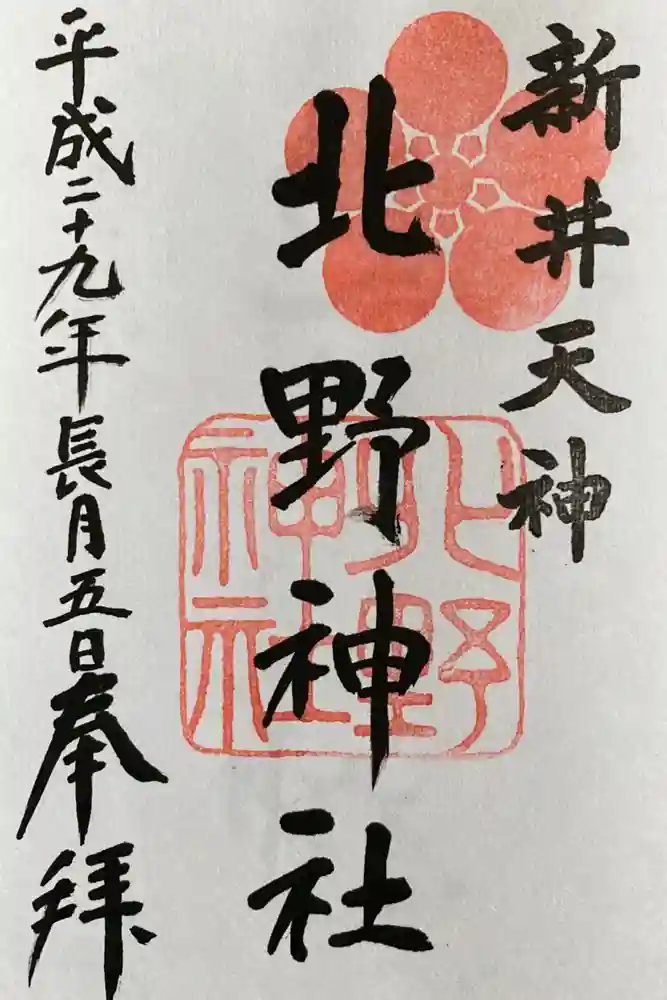 新井天神
北野神社
北野
神社
平成二十九年長月五日奉拝